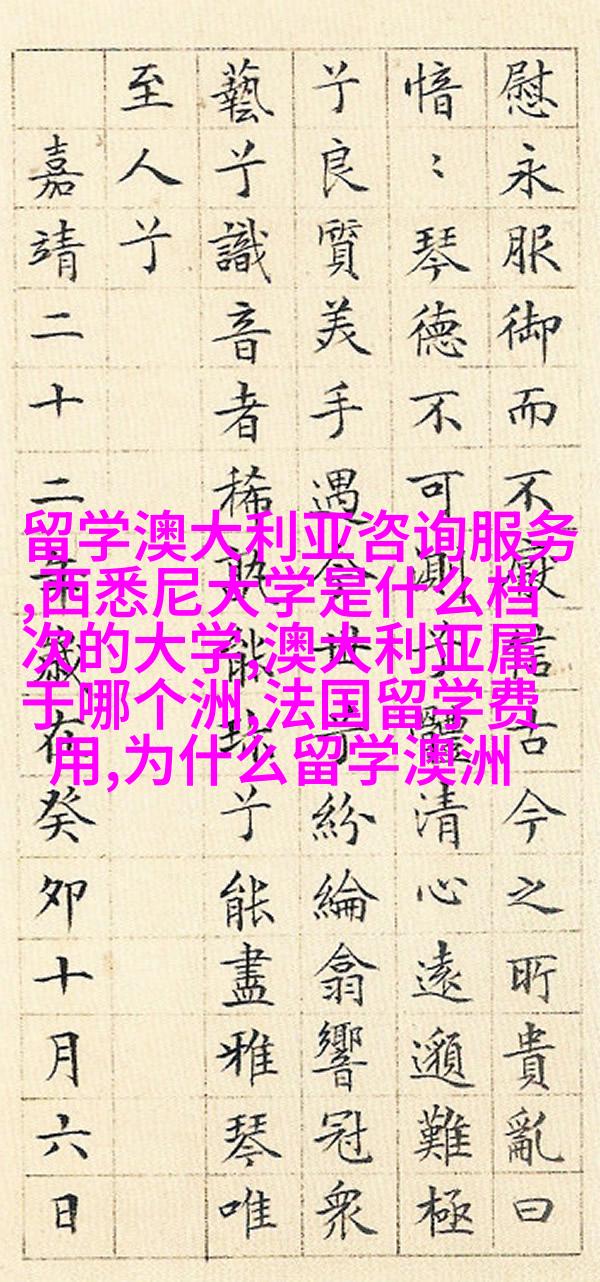 慰永服御而不厭信古今之所貴亂曰
愔〻琴德不可測兮體清心遠邈難極
兮良質美手遇今世兮紛綸翕響冠眾
藝兮識音者稀孰能珍兮能盡雅琴唯
至人兮
嘉靖二十二年歲在癸卯十月六日
留学澳大利亚咨询服务
,西悉尼大学是什么档
次的大学,澳大利亚属
于哪个洲,法国留学费
用,为什么留学澳洲